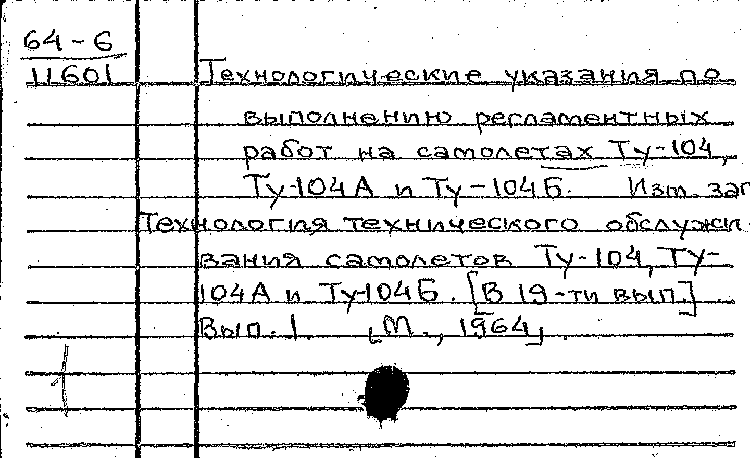 64-6
11601
Технологические указания по
выполнению регламентных
работ на самолетах Ту-104,
Ту-104А и Ту-104Б. Изм. заг
Технология технического обслужи-
вания самолетов Ту-104, Ту-
104А и Ту-104Б. [В 19-ти вып.]
Вып. 1. [М., 1964]